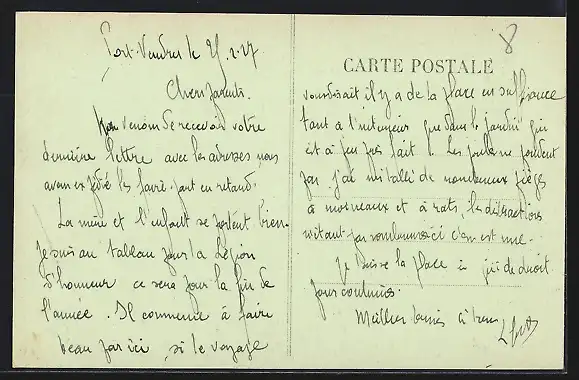 Port-Vendres le 25.2.27
Chers parents.
venons de recevoir votre
dernière lettre avec les adresses nous
avons expédié les faire part en retard.
La mère et l'enfant se portent bien.
Je suis au tableau pour la Légion
d'honneur ce sera pour la fin de
l'année. Il commence à faire
beau par ici, si le voyage
CARTE POSTALE
vous disait il y a de la place en suffisance
tant à l'intérieur que dans le jardin qui
est à peu près fait. Les poules ne pondent
pas. j'ai installé de nombreux pièges
à moineaux et à rats, les distractions
n'étant pas nombreuses ici c'en est une.
Je laisse la place à qui de droit
pour continuer.
Meilleurs baisers à tous